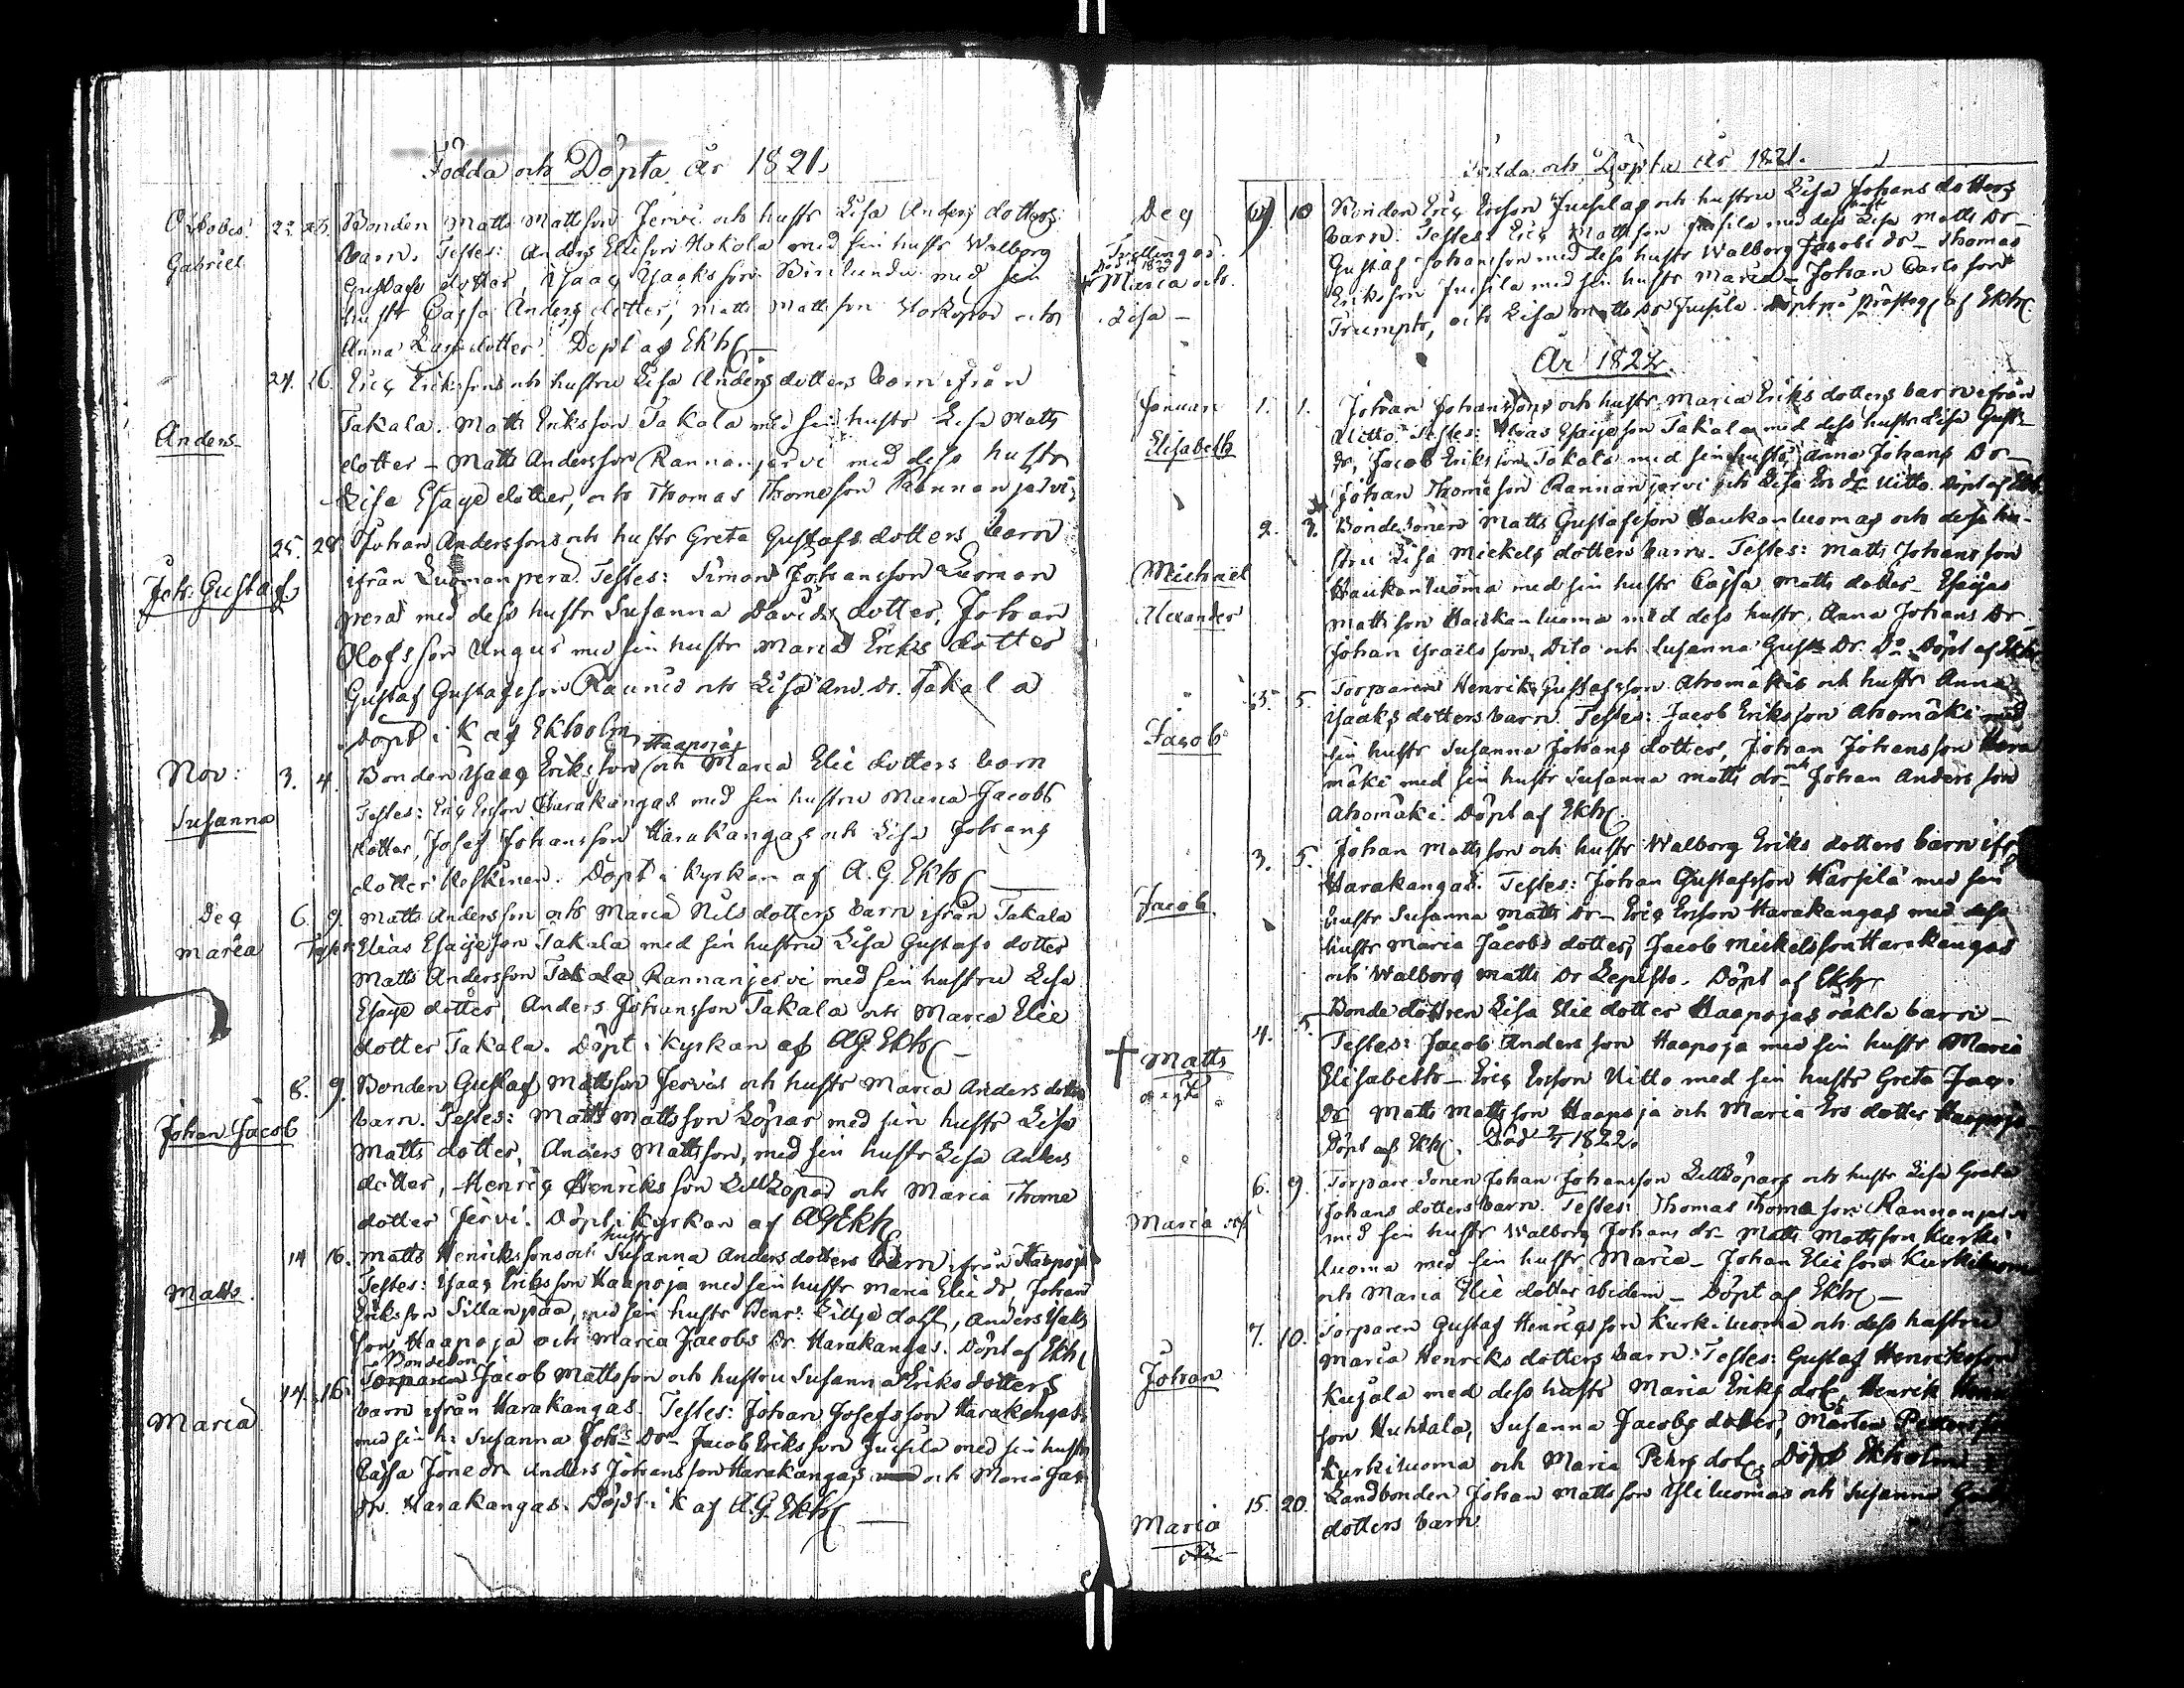 Födda och Döpta År 1821.
October 22. 23. Bonden Matts Mattsson Jervi och hustr Lisa Anders dotters
Gabriel barn. Testes: Anders Elieson Hakola med sin hustr Walborg
Gustafs dotter, Ysaac Ysaaksson med sin
hustr Cajsa Anders dotter, Matts Mattsson och
Anna dotter. Döpt af Ekh
24. 26. Eric Erikssons och hustru Lisa Anders dotters barn ifrån
Anders Takala. Matts Eriksson Takala med sin hustr Lisa Matts
dotter – Matts Andersson Rannanjervi med dess hustr
Lisa Esaye dotter, och Thomas Thomeson Rannanjervi
25. 28 Johan Anderssons och hustr Greta Gustafs dotters barn
Joh: Gustaf ifrån Luomanpera. Testes: Simon Johansson Luoman
pera med dess hustr Susanna Davids dotter, Johan
Olofsson Ungus med sin hustr Maria Eriks dotter
Gustaf Gustafsson Raunio och Lisa And. Dr. Takala
Döpt i K af Ekholm
Haapojas
Nov: 3. 4. Bonden Ysaac Eriksson och Maria Elie dotters barn
Susanna Testes: Eric Ersson Harakangas med sin hustru Maria Jacobs
dotter, Josef Johansson Harakangas och Lisa Johans
dotter Keskinen. Döpt i Kyrkan af A.G. Ekh
Dec 6. 9. Matts Andersson och Maria Nils dotters barn ifrån Takala
Maria Testes: Elias Esaijeson Takala med sin hustru Lisa Gustafs dotter
Matts Andersson Takala Rannanjervi med sin hustru Lisa
Esaye dotter, Anders Johansson Takala och Maria Elie
dotter Takala. Döpt i Kyrkan af AG. Ekh –
8. 9. Bonden Gustaf Mattsson Jervis och hustr Maria Anders dotters
Johan Jacob barn. Testes: Matts Mattsson Köpas med sin hustr Lisa
Matts dotter, Anders Mattsson, med sin hustr Lisa Anders
dotter, Henric Henriksson och Maria Thome
dotter Jervi. Döpt i Kyrkan af AG Ekh
hustr
14 16. Matts Henrikssons och Susanna Anders dotters barn ifrån Haapoja
Matts. Testes: Ysaac Eriksson Haapoja med sin hustr Maria Elie dr, Johan
Eriksson Sillanpää, med sin hustr Lilljedahl, Anders Ysaks
son Haapoja och Maria Jacobs Dr. Harakangas. Döpt af Ekh
Bondeson
14. 16. Torparen Jacob Mattsson och hustru Susanna Eriks dotters
Maria barn ifrån Harakangas. Testes: Johan Josefsson Harakangas
med sin h: Susanna Johs Dr – Jacob Eriksson Jusila med sin hustr
Cajsa dr Anders Johansson Harakangas och Maria Jac
dr. Harakangas. Döpt i K af A.G. Ekh
Födda och Döpta År 1821.
Dec 10 Bonden Eric Ersson Jusilas och hustru Lisa Johans dotters
Tvillingar. barn. Testes: Eric Mattsson Jusila med dess hust Lisa Matts Dr
Maria och Gustaf Johansson med dess hustr Walborg Jacobs dr – Thomas
Lisa – Eriksson Jusila med sin hustr Maria – Johan Carlsson
Trumpts, och Lisa Matts Dr Jusila. Döpt på af Ekh
År 1822.
Januari 1. 1. Johan Johanssons och hustr. Maria Eriks dotters barn ifrån
Elisabeth Uitto. Testes: Elias Esaijeson Takala med dess hustr Lisa Gust
dr, Jacob Eriksson Takala med sin hustr Anna Johans Dr –
Johan Thomeson Rannanjervi och Lisa Ers dr Uitto. Döpt af Ekh
2. 3. Bondesonen Matts Gustafsson Haukanluomas och dess hu-
Michael stru Lisa Mickels dotters barn. Testes: Matts Johansson
Alexander Haukanluoma med sin hustr Cajsa Matts dotter – Esaijas
Mattsson Haukanluoma med dess hustr, Anna Johans Dr
Johan Israelsson, Dito och Susanna Gust Dr. Do. Döpt af Ekh
5. Torparen Henrik Gustafsson Ahomäkis och hustr Anna
Jacob Ysaaks dotters barn. Testes: Jacob Eriksson Ahomäki med
sin hustr Susanna Johans dotter, Johan Johansson
mäki med sin hustr Susanna Matts dr – och Johan Andersson
Ahomäki. Döpt af Ekh
3. 5. Johan Mattsson och hustr Walborg Eriks dotters barn ifr
Jacob. Harakangas. Testes: Johan Gustafsson Harsila med sin
hustr Susanna Matts Dr – Eric Ersson Harakangas med dess
hustr Maria Jacobs dotter, Jacob Mickelsson Harakangas
och Walborg Matts Dr Lepisto. Döpt af Ekh
4. 5. Bonde dottren Lisa Elie dotter Haapojas oäkta barn –
† Matts Testes: Jacob Andersson Haapoja med sin hustr Maria
oägt. Elisabeth – Eric Ersson Uitto med sin hustr Greta Jac.
Dr Matts Mattsson Haapoja och Maria Ers dotter Haapoja
Döpt af Ekh. Död 1822.
6. 9. Torpare Sonen Johan Johansson och hustr Lisa Greta
Maria Johans dotters barn. Testes: Thomas Thomasson Rannanjervi
med sin hustr Walborg Johans dr – Matts Mattsson Kurki
luoma med sin hustr Maria – Johan Elieson Kurkiluoma
och Maria Elie dotter ibidem – Döpt af Ekh –
7. 10. Torparen Gustaf Henricsson Kurkiluoma och dess hustru
Johan Maria Henriks dotters barn. Testes: Gustaf Henriksson
Kujala med dess hustr Maria Eriks dot, Henrik
son Huhtala, Susanna Jacobs dotter, Mårten
Kurkiluoma och Maria Pehrs dot. Döpt Ekholm
15. 20. Landbonden Johan Mattsson Yliluomas och Susanna
Maria dotters barn